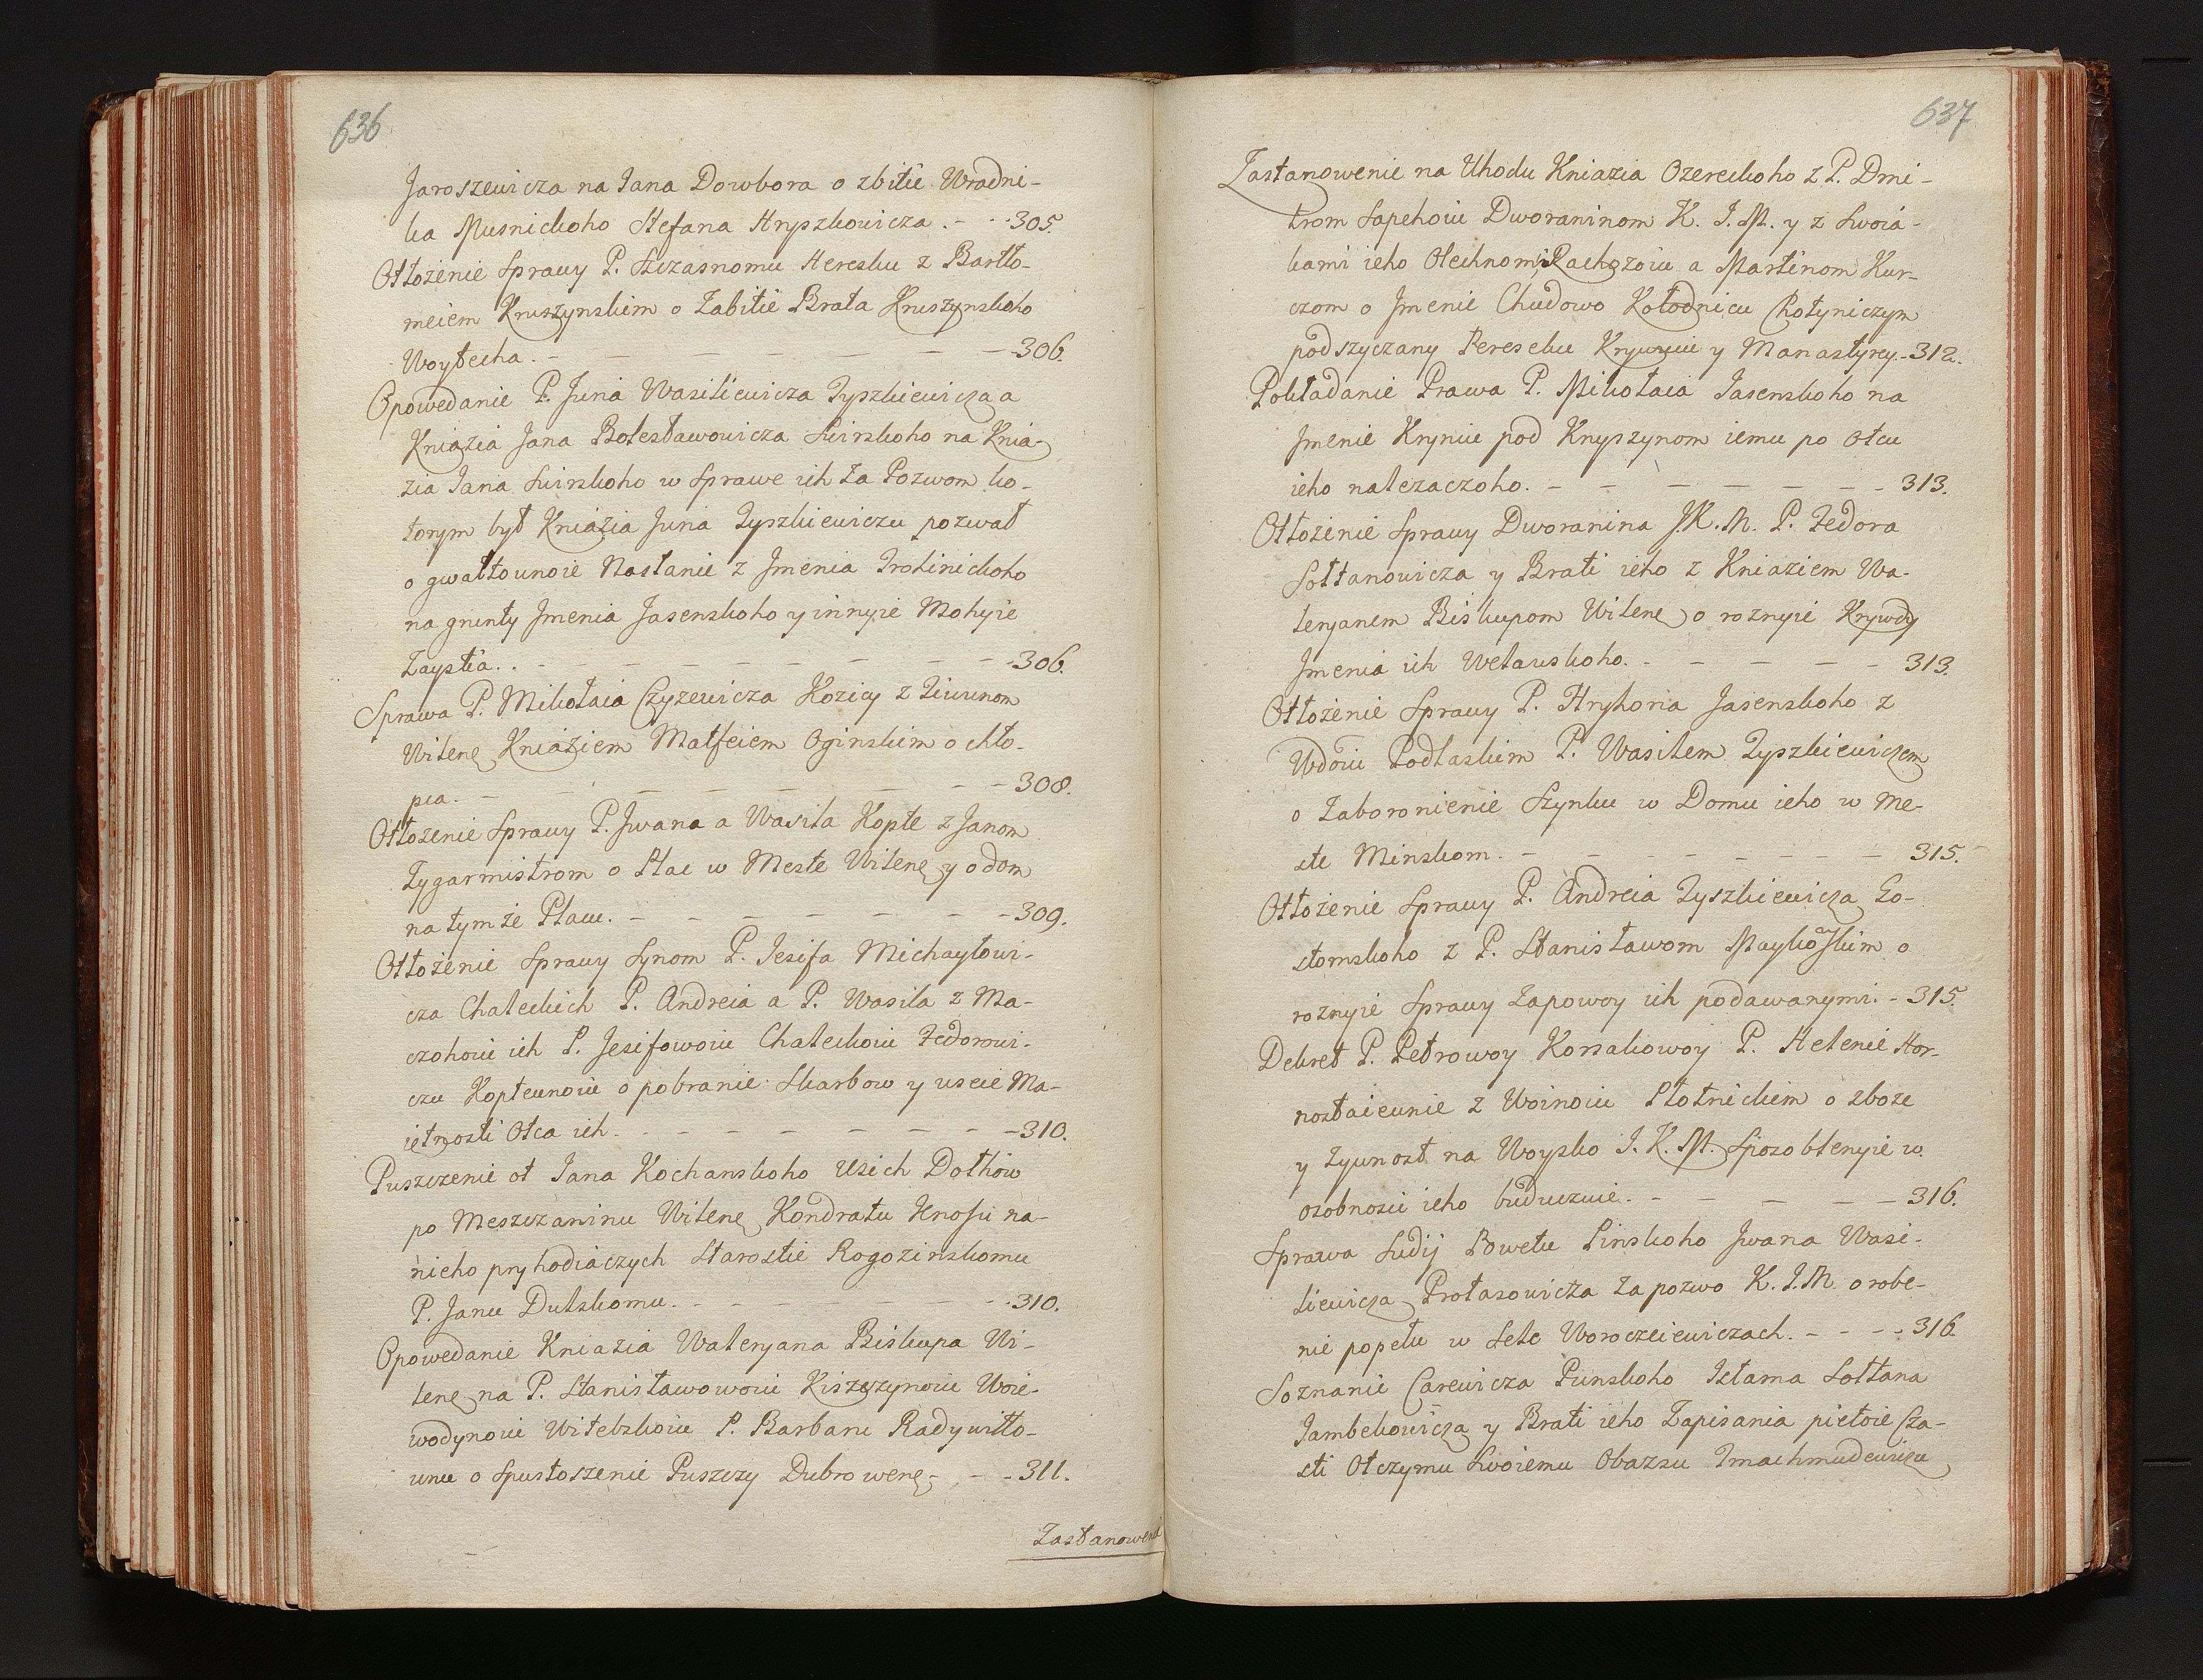 636
Jaroszewicza na Jana Dowbora o zbitie Wradni-
ka Musnickoho Stefana Hryszkowicza. - - - 305.
Otłożenie Sprawy P. Szczasnomu Heresku z Bartło-
meiem Kruszynskim o Zabitie Brata Kruszynskoho
Woytecha. - - - - - - 306.
Opowedanie P. Juria Wasiliewicza Tyszkiewicza a
Kniazia Jana Bolesławowicza Swirskoho na Knia-
zia Jana Swirskoho w Sprawe ich za Pozwom ko-
torym był Kniazia Juria Tyszkiewiczu pozwał
o gwałtownoie Nasłanie z Jmenia Trokinickoho
na grunty Jmenia Jasenskoho y innyie Mohyie
Zaystia. - - - - - - - - 306.
Sprawa P. Mikołaia Czyzewicza Kozicy z Tiwunom
Wilenę Kniaziem Matfeiem Oginskim o chło-
pca. - - - - - - - - 308.
Otłożenie Sprawy P. Jwana a Wasila Kopte z Janom
Zygarmistrom o Plac w Meste Wilenę y o dom
na tym że Placu. - - - - - - - 309.
Otłożenie Sprawy Synom P. Jesifa Michayłowi-
cza Chaleckich P. Andreia a P. Wasila z Ma-
czohoiu ich P. Jesifowoiu Chaleckoiu Fedorowi-
czu Koptewnoiu o pobranie Skarbow y uscie Ma-
ietnosti Otca ich. - - - - - - - 310.
Puszczenie ot Jana Kochanskoho Usich Dołhow
po Meszczaninu Wilenę Kondratu Krosu na-
nieho pryhodiaczych Starostie Rogozinskomu
P. Janu Dulskomu. - - - - - - 310.
Opowedanie Kniazia Waleryana Biskupa Wi-
lenę na P. Stanisławowoiu Kiszczynoiu Woie-
wodynoiu Witebskoiu P. Barbaru Radywiłło-
wnu o Spustoszenie Puszczy Dubrowenę - - - 311.
Zastanowenie
637
Zastanowenie na Uhodu Kniazia Ozereckoho z P. Dmi-
trom Sapehoiu Dworaninom K. J. M. y z Swoia-
kami ieho Olechnom Rachozoiu a Martinom Kur-
czom o Jmenie Chudowo Kołodnicu Chotyniczym
podszyczany Pereselu y Manastyrcy - 312.
Pokładanie Prawa P. Mikołaia Jasenskoho na
Jmenie Kryniu pod Knyszynom iemu po Otcu
ieho nalezaczoho. - - - - - - - 313.
Otłożenie Sprawy Dworanina J. K. M. P. Fedora
Sołtanowicza y Brati ieho z Kniaziem Wa-
leryanem Biskupom Wilenę o roznyie Krywdy
Jmenia ich Welawskoho. - - - - - 313.
Otłożenie Sprawy P. Hryhoria Jasenskoho z
Wdoiu Podlaskim P. Wasilem Tyszkiewiczem
o Zaboronienie Szynku w Domu ieho w Me-
ste Minskom. - - - - - - - 315.
Otłożenie Sprawy P. Andreia Tyszkiewicza Ło-
stomskoho z P. Stanisławom Maykowskim o
roznyie Sprawy Zapowoy ich podawanymi. - 315.
Dekret P. Petrowoy Korsakowoy P. Helenie Hor-
nostaiewnie z Woinoiu Płotnickiem o zboze
y zywnost na Woysko J. K. M. Sposoblenyie w
osobnosci ieho buduczuie. - - - - - 316.
Sprawa Sudij Powetu Pinskoho Jwana Wasi-
liewicza Protasowicza za pozwo K. J. M. o robe-
nie popełu w Sele Woroczeiewiczach. - - - - 316.
Soznanie Carewicza Punskoho Isłama Sołtana
Jambekowicza y Brati ieho Zapisania pietoie Cza-
sti Otczymu Swoiemu Obazsu Jmachmudewiczu